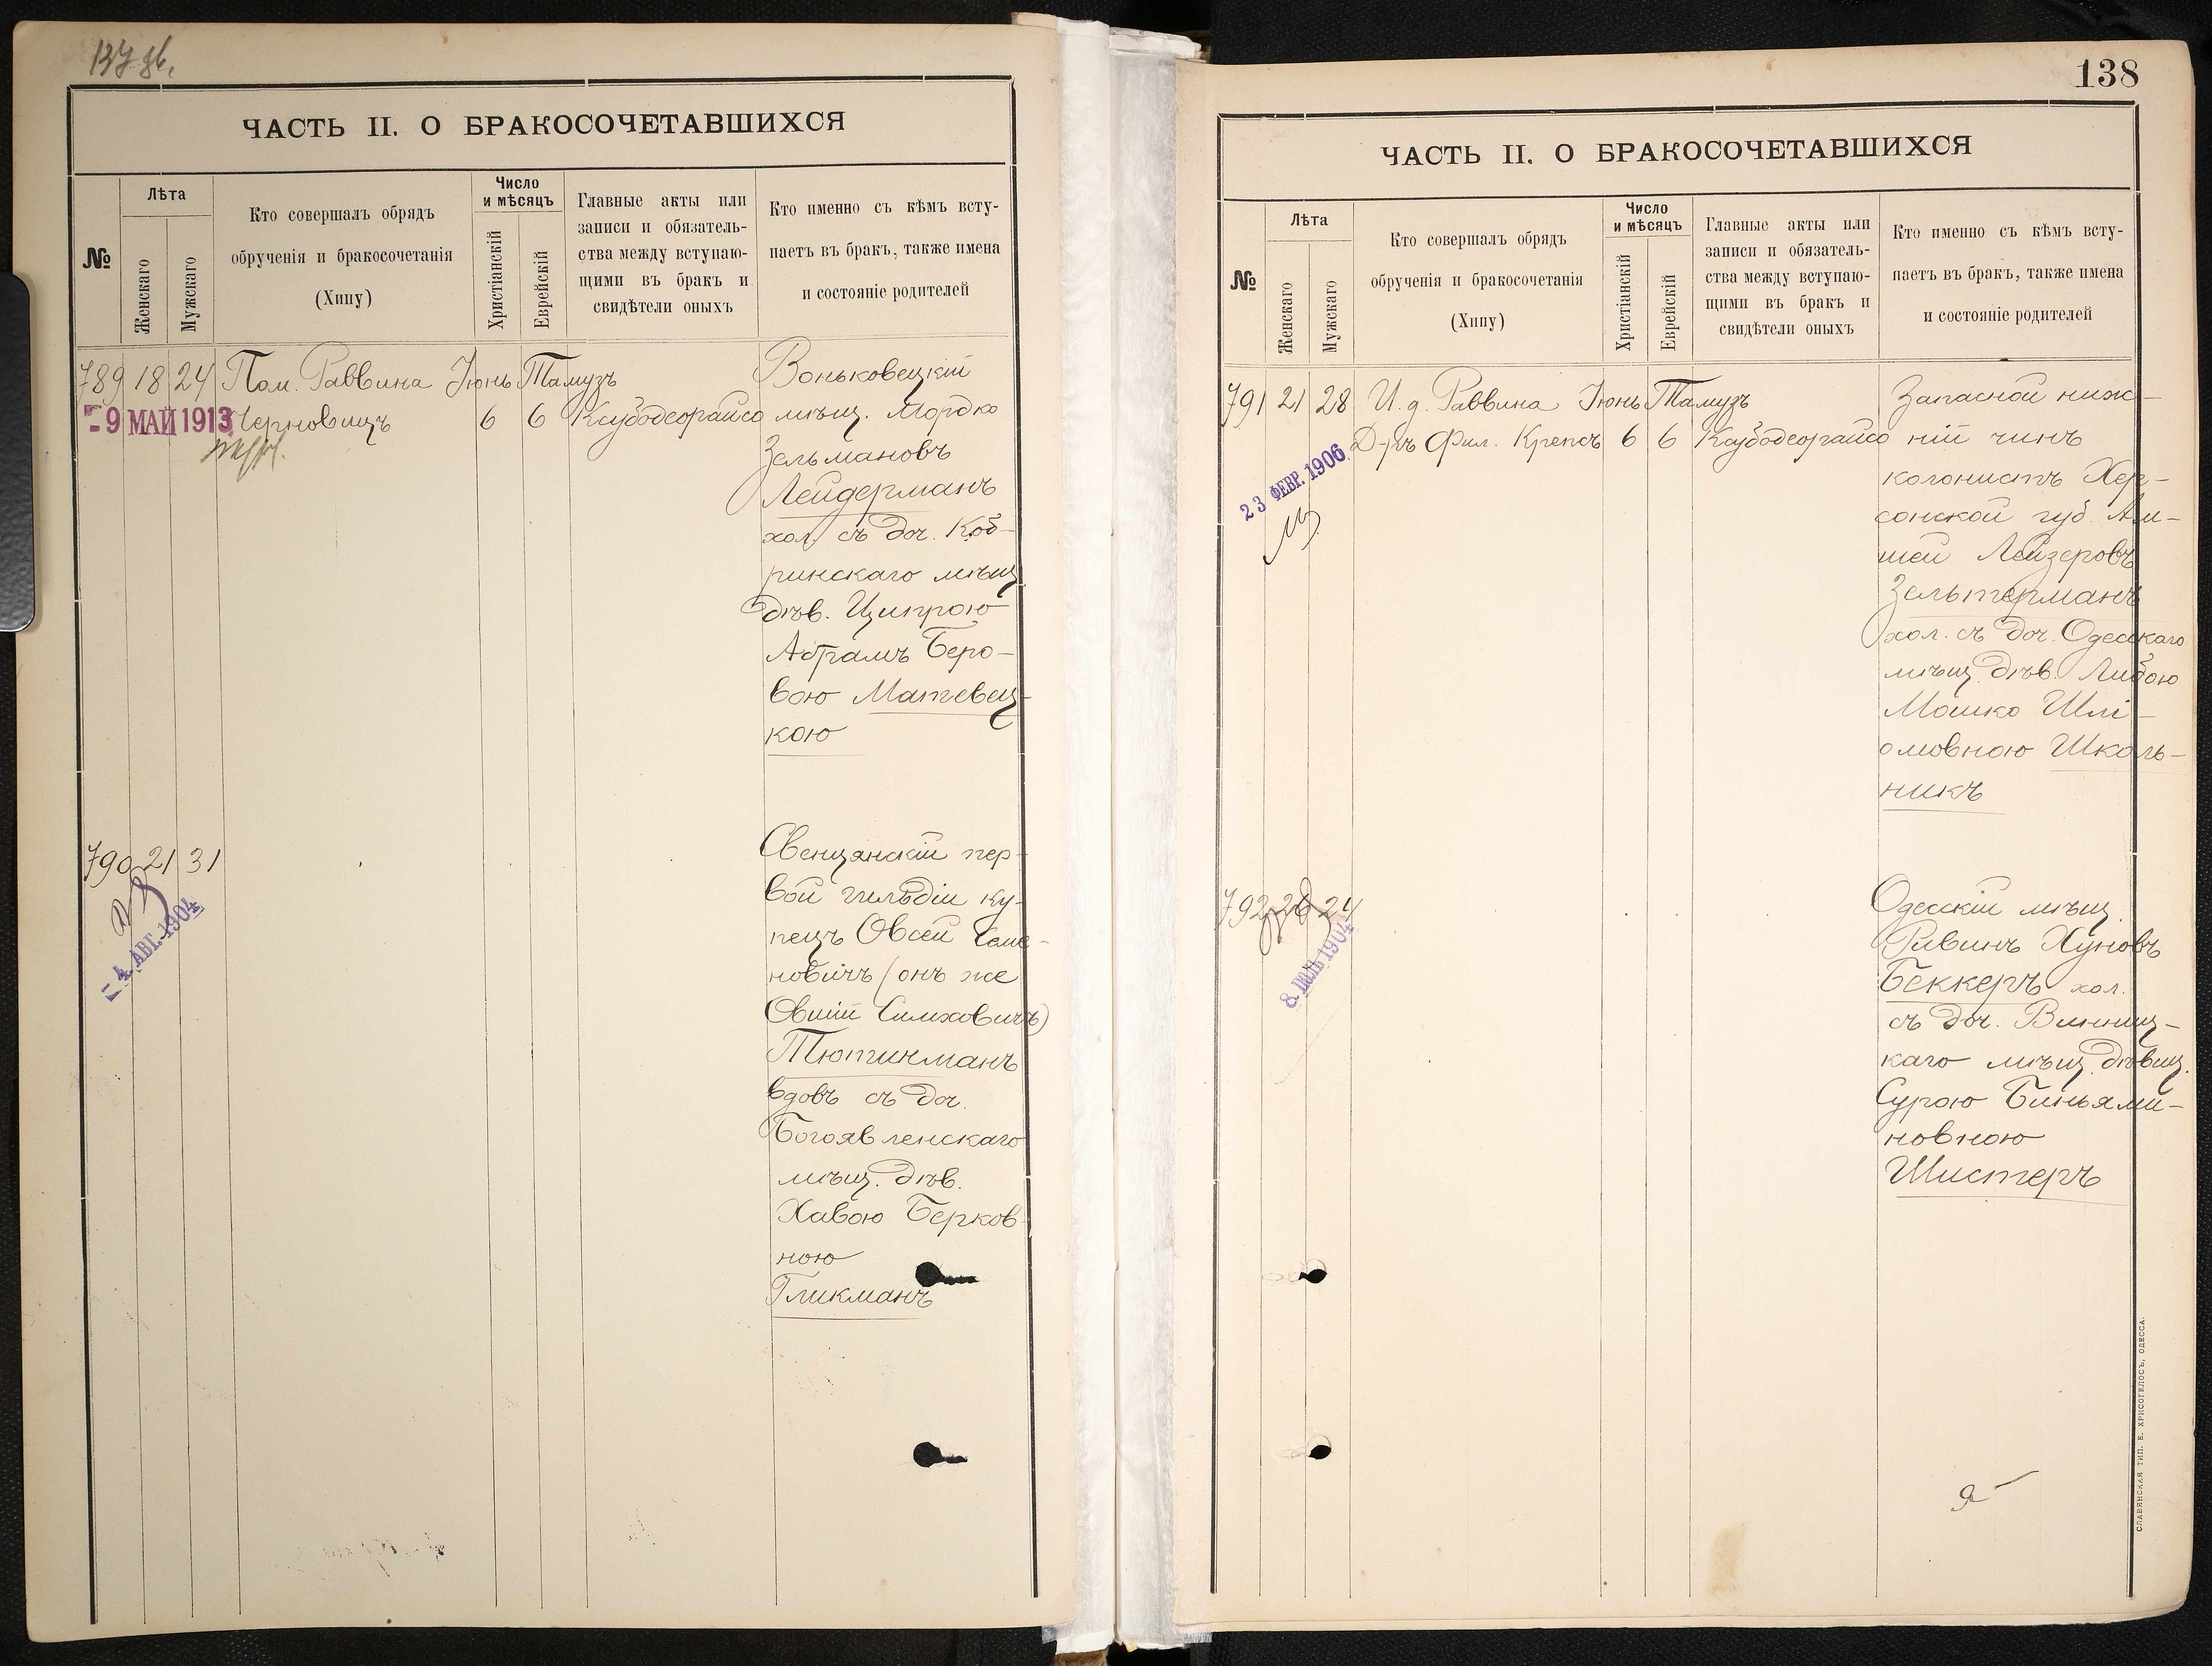 137 об.
ЧАСТЬ II. О БРАКОСОЧЕТАВШИХСЯ
№
Лѣта
Женскаго
Мужскаго
Кто совершалъ обрядъ
обрученія и бракосочетанія
(Хипу)
Число
и мѣсяцъ
Христіанскій
Еврейскій
Главные акты или
записи и обязатель-
ства между вступаю-
щими въ бракъ и
свидѣтели оныхъ
Кто именно съ кѣмъ всту-
паетъ въ бракъ, также имена
и состояніе родителей
789 18 24 Пом. Раввина Іюнь Тамузъ
Черновицъ 6 6
9 МАЙ 1913
Воньковецкій
мѣщ. Мордко
Зельмановъ
Лейдерманъ
хол. съ доч. Коб-
ринскаго мѣщ
дѣв. Ципрою
Абрамъ Беро-
вою Матевец-
кою
790 21 31
4 АВГ. 1904
Свенцянскій пер-
вой гильдіи ку-
пецъ Овсей Семе-
новичъ (онъ же
Овшій Симховичъ)
Тютинманъ
вдовъ съ доч.
Богоявленскаго
мѣщ. дѣв.
Хавою Берков-
ною
Гликманъ
138
ЧАСТЬ II. О БРАКОСОЧЕТАВШИХСЯ
№
Лѣта
Женскаго
Мужскаго
Кто совершалъ обрядъ
обрученія и бракосочетанія
(Хипу)
Число
и мѣсяцъ
Христіанскій
Еврейскій
Главные акты или
записи и обязатель-
ства между вступаю-
щими въ бракъ и
свидѣтели оныхъ
Кто именно съ кѣмъ всту-
паетъ въ бракъ, также имена
и состояніе родителей
791 21 28 И. д. Раввина Іюнь Тамузъ
Д-ръ Фил. Крепсъ 6 6
23 ФЕВР. 1906
Запасной ниж-
ній чинъ
колонистъ Хер-
сонской губ. Ам-
шей Лейзеровъ
Зельтерманъ
хол. съ доч. Одесскаго
мѣщ. дѣв. Либою
Мошко Шлі-
омовною Школь-
никъ
792 26 24
8 ІЮЛЬ 1904
Одесскій мѣщ.
Ривинъ Хуновъ
Беккеръ хол.
съ доч. Винниц-
каго мѣщ. дѣвиц.
Сурою Биньями-
новною
Шистеръ
СЛАВЯНСКАЯ ТИП. Е. ХРИСОГЕЛОСЪ, ОДЕССА.